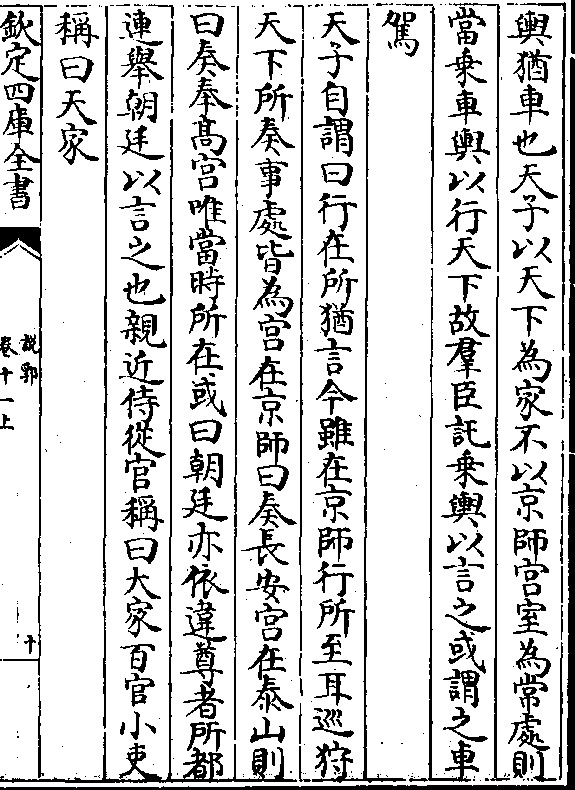 輿猶車也天子以天下為家不以京師宫室為常處則
當乗車輿以行天下故羣臣託乗輿以言之或謂之車
駕
天子自謂曰行在所猶言今雖在京師行所至耳巡狩
天下所奏事處皆為宫在京師曰奏長安宫在泰山則
曰奏奉髙宫唯當時所在或曰朝廷亦依違尊者所都
連舉朝廷以言之也親近侍從官稱曰大家百官小吏
稱曰天家
欽定四庫全書
說郛
卷十一上
十